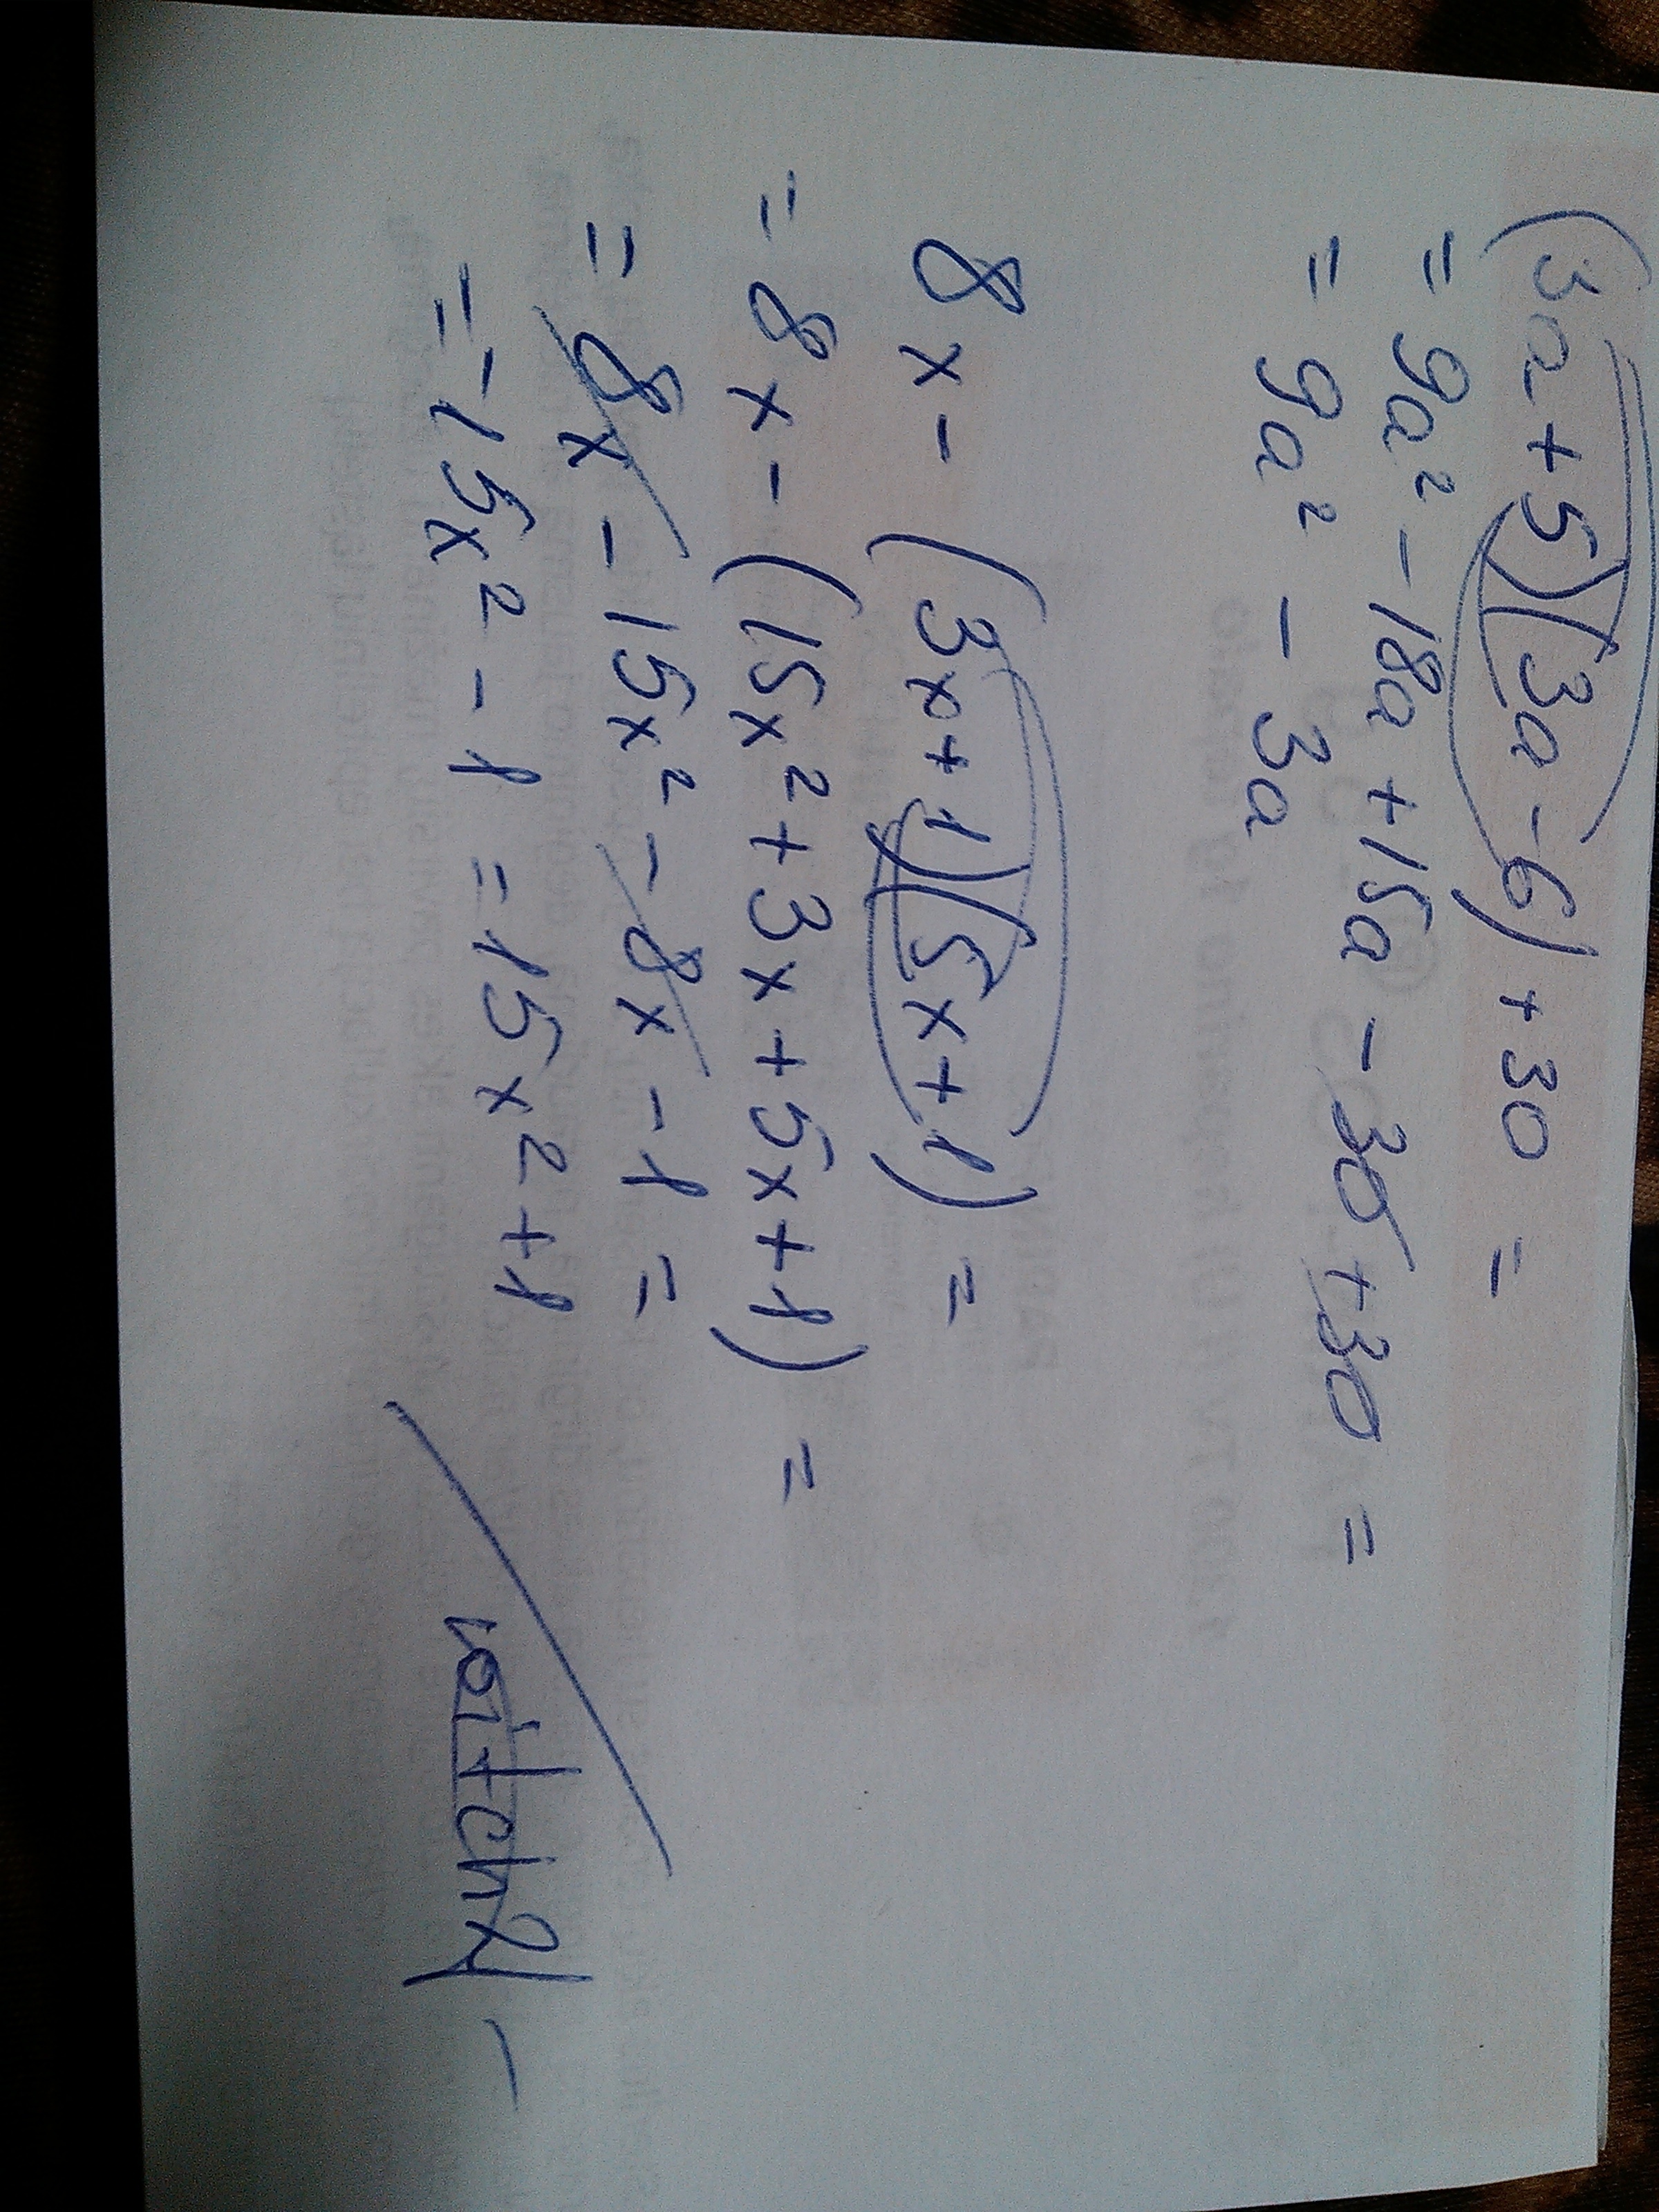 (3a+5)(3a-6)+30=
=9a²-18a+15a-30+30=
=9a²-3a
8x-(3x+1)(5x+1)=
=8x-(15x²+3x+5x+1)=
=8x-15x²-8x-1=
=-15x²-1=15x²+1